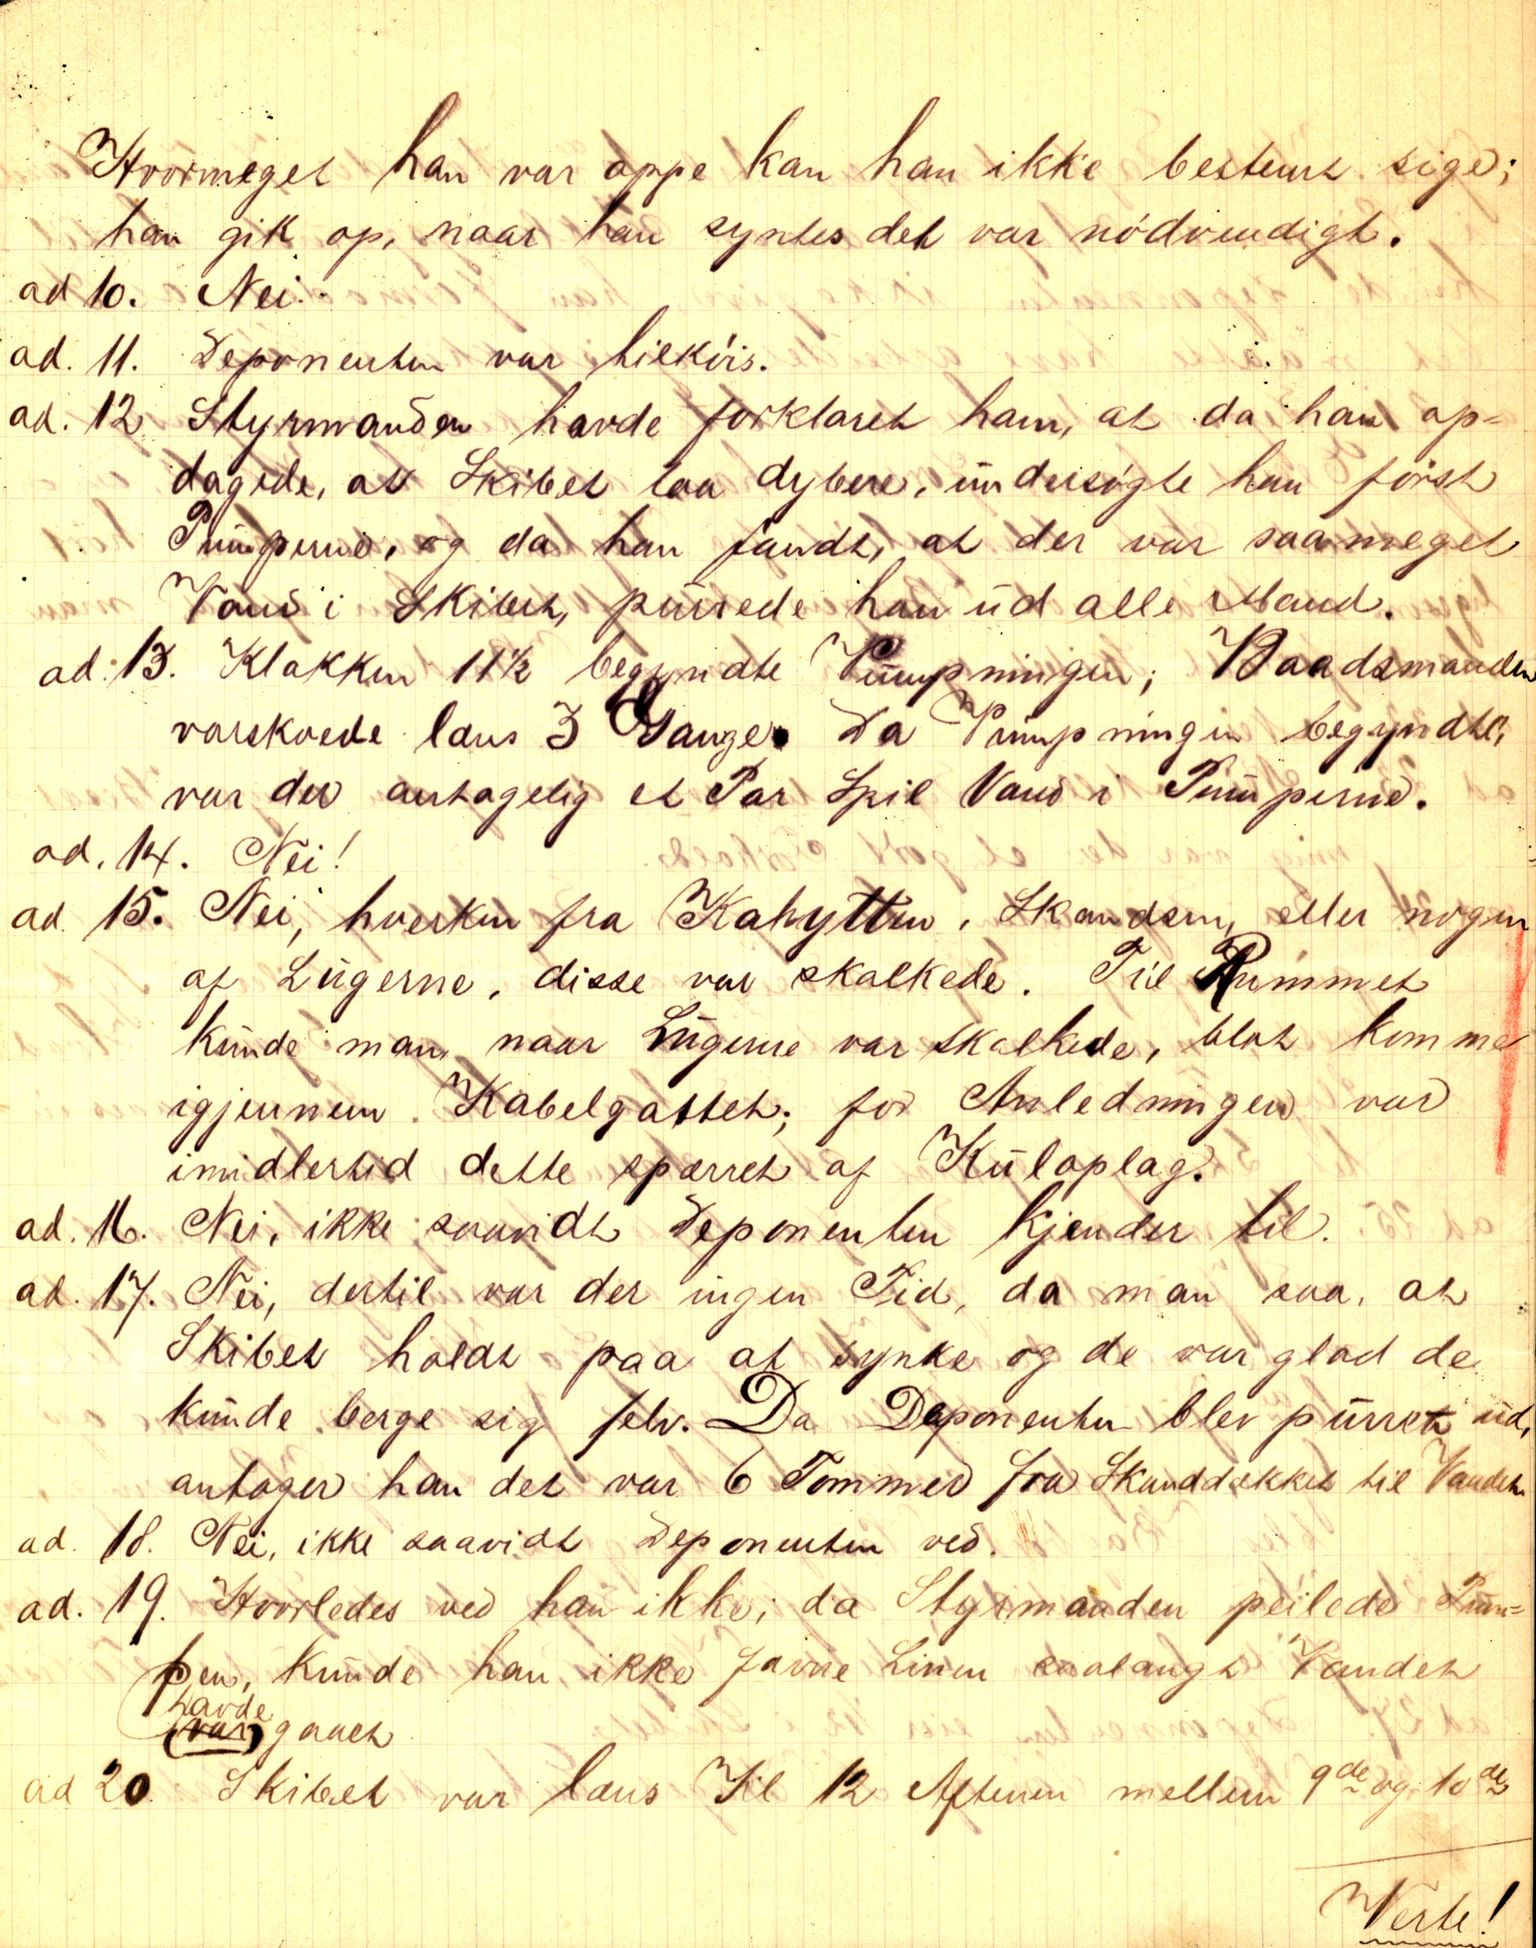 Hvormeget han var oppe kan han ikke bestemt sige;
han gik op, naar han syntes det var nödvendigt.
ad 10. Nei.
ad. 11. Deponenten var tilköis.
ad. 12 Styrmanden havde forklaret ham, at da han op-
dagede, at Skibet laa dybere, undersögte han först
Pumperne, og da han fandt, at der var saameget
Vand i Skibet, purrede han ud alle Mand.
ad. 13. Klokken 11½ begyndte Pumpningen; Baadsmanden
varskoede læns 3 Gange. Da Pumpningen begyndte,
var der antagelig et Par Spil Vand i Pumperne.
ad. 14. Nei!
ad. 15. Nei, hverken fra Kahytten, Skandsen, eller nogen
af Lugerne, disse var skalkede. Til Rummet
kunde man, naar Lugerne var skalkede, blot komme
igjennem Kabelgattet; for Anledningen var
imidlertid dette spærret af Kuloplag.
ad. 16. Nei, ikke saavidt Deponenten kjender til.
ad. 17. Nei, dertil var der ingen Tid, da man saa, at
Skibet holdt paa at synke og de var glad de
kunde berge sig selv. Da Deponenten blev purret ud,
antager han det var 6 Tommer fra Skanddækket til Vandet.
ad. 18. Nei, ikke saavidt Deponenten ved.
ad. 19. Hvorledes ved han ikke; da Styrmanden peilede Pum-
pen, kunde han ikke finne Linen saalangt Vandet
havde
(var) gaaet
ad 20. Skibet var læns Kl 12 Aftenen mellem 9de og 10de
Verte!